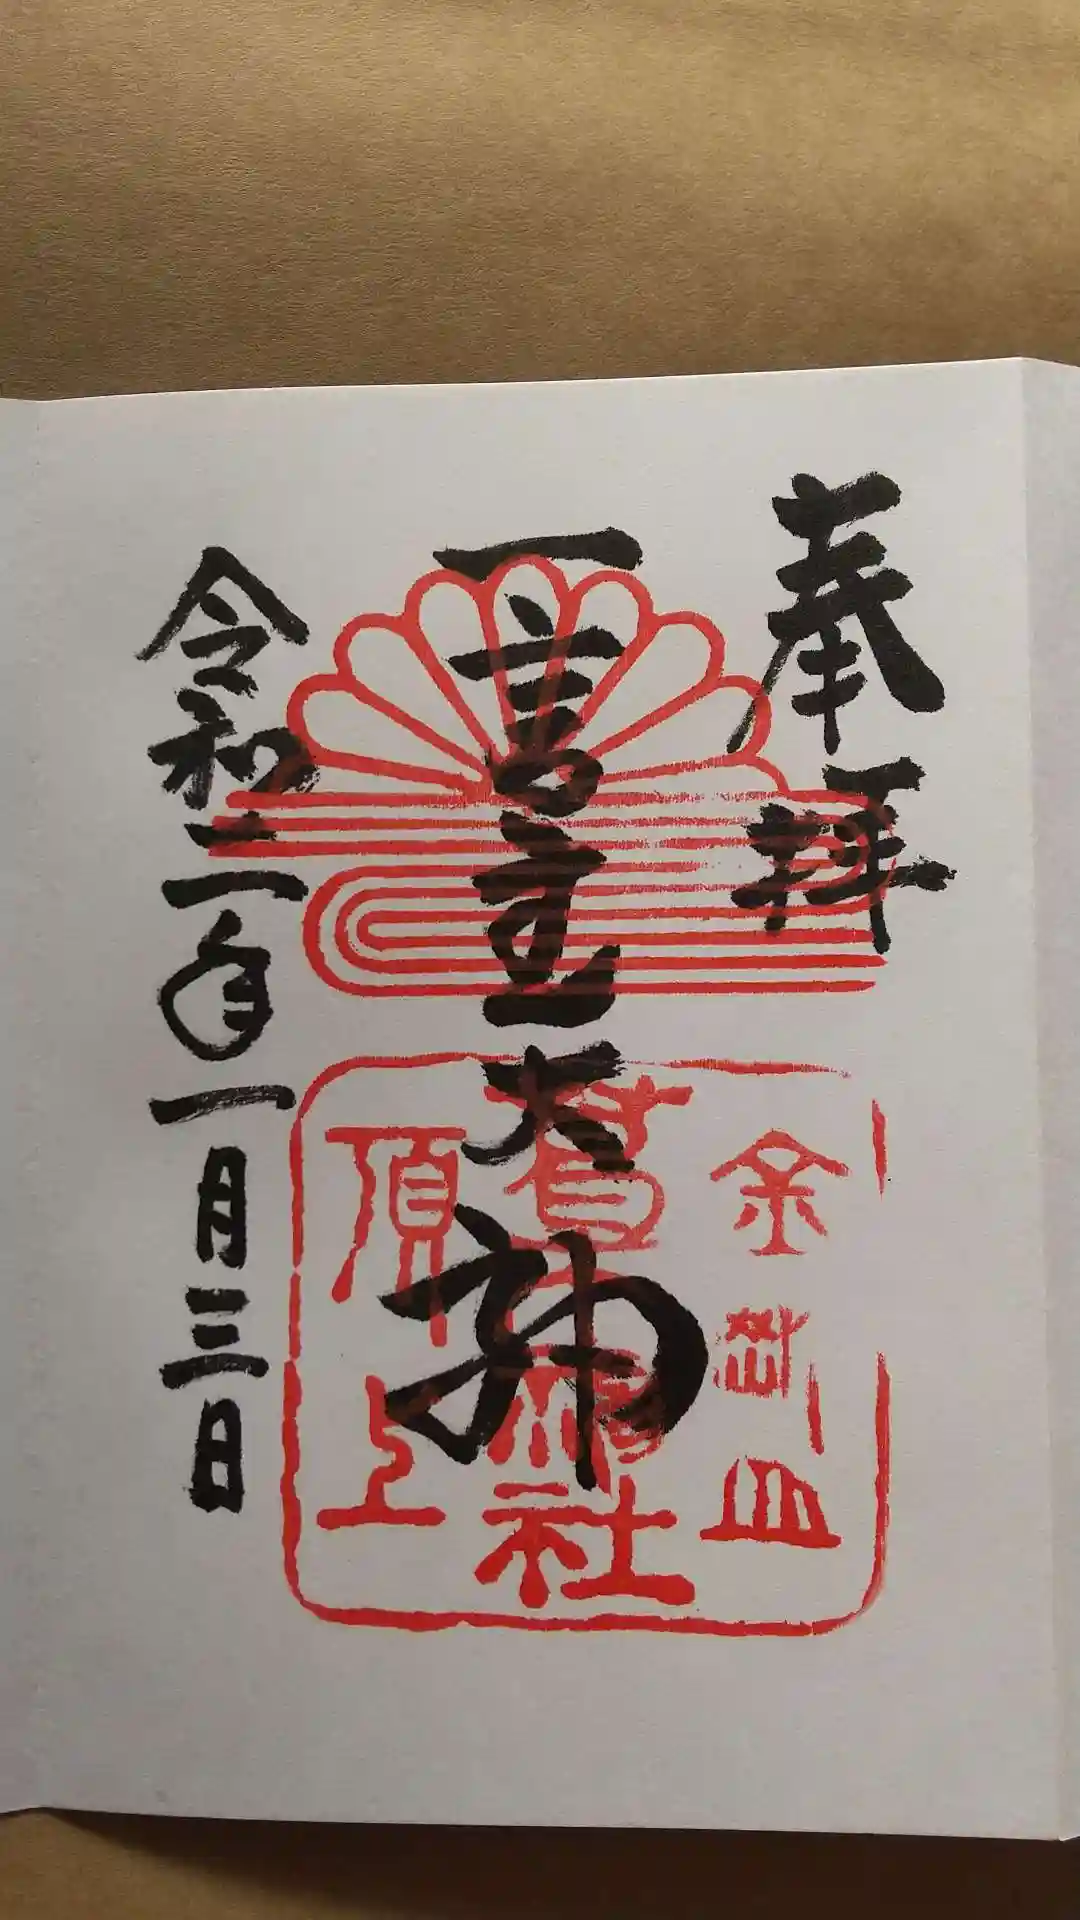 奉拝
一言主大神
令和二年一月三日
金剛山
葛木神社
頂上